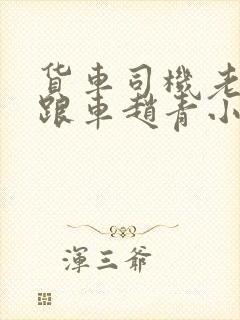 貨車司機老
跟車趙青小
渾三爺